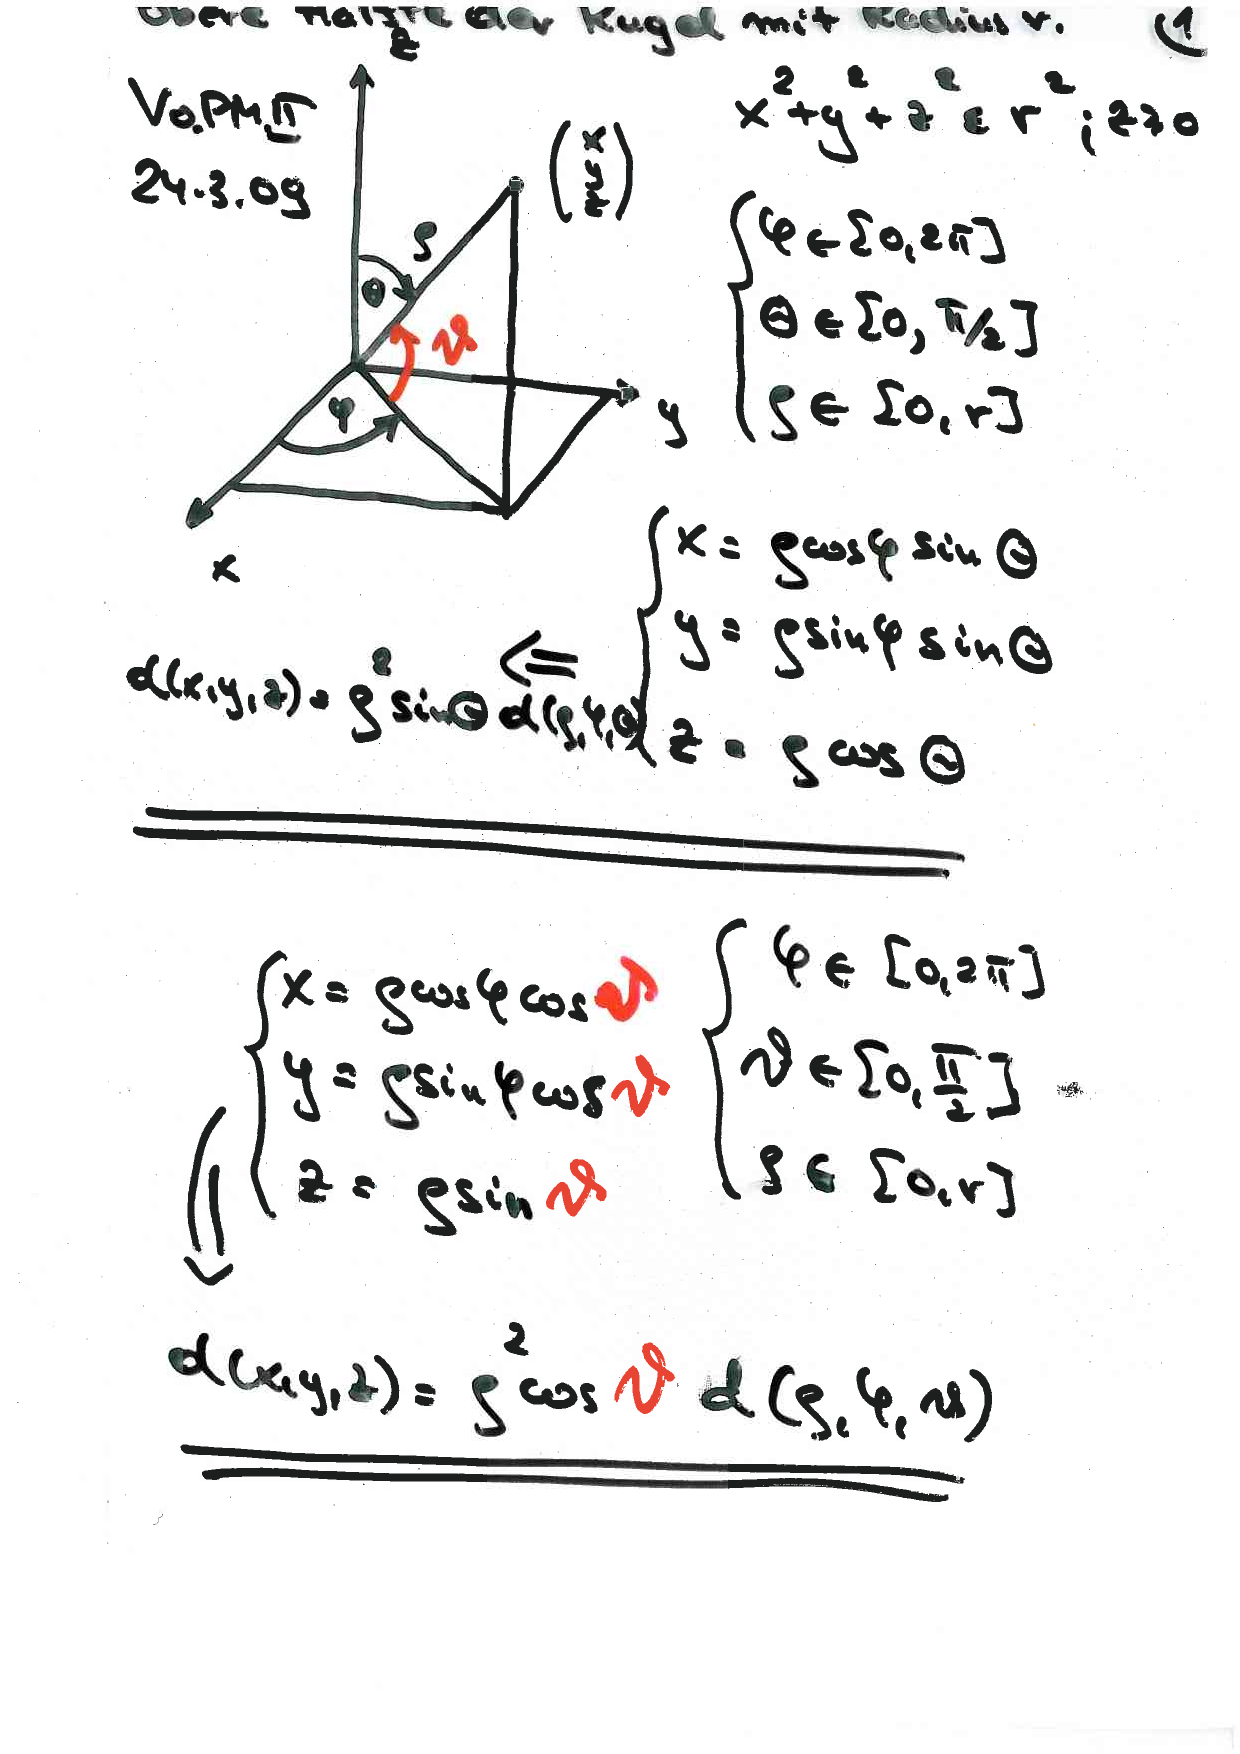 obere Hälfte der Kugel mit Radius r. (1
Vo.PM.II
24.3.09
z
x² + y² + z² ≤ r² ; z≥0
(x y z)
ρ
θ
ϑ
φ
y
x
φ ∈ [0, 2π]
Θ ∈ [0, π/2]
ρ ∈ [0, r]
x = ρ cos φ sin Θ
y = ρ sin φ sin Θ
z = ρ cos Θ
d(x,y,z) = ρ² sin Θ d(ρ,φ,Θ) ⇐
x = ρ cos φ cos ϑ
y = ρ sin φ cos ϑ
z = ρ sin ϑ
φ ∈ [0, 2π]
ϑ ∈ [0, π/2]
ρ ∈ [0, r]
⇓
d(x,y,z) = ρ² cos ϑ d(ρ, φ, ϑ)